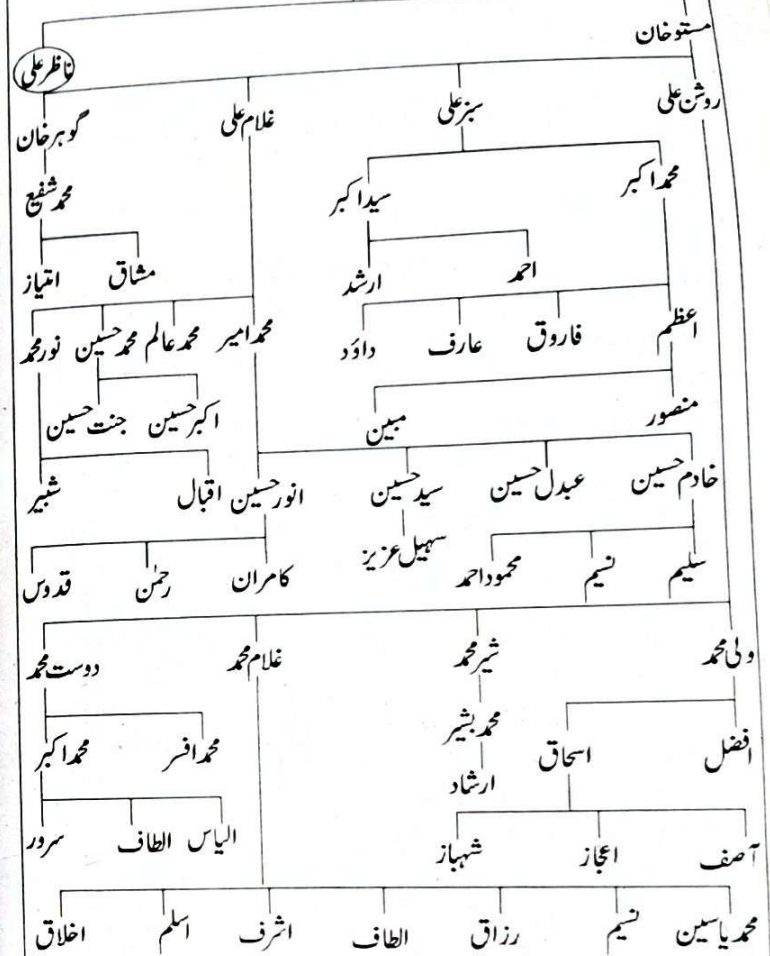 مستوخان
ناظر علی
روشن علی سبز علی غلام علی گوہر خان
محمد اکبر سید اکبر محمد شفیع
احمد ارشد مشاق امتیاز
اعظم فاروق عارف داؤد محمد امیر محمد عالم محمد حسین نور محمد
منصور مبین اکبر حسین جنت حسین
خادم حسین عبدل حسین سید حسین انور حسین اقبال شبیر
سلیم نسیم محمود احمد سہیل عزیز کامران رحمٰن قدوس
ولی محمد شیر محمد غلام محمد دوست محمد
افضل اسحاق محمد بشیر محمد افسر محمد اکبر
ارشاد
آصف اعجاز شہباز الیاس الطاف سرور
محمد یاسین نسیم رزاق الطاف اشرف اسلم اخلاق